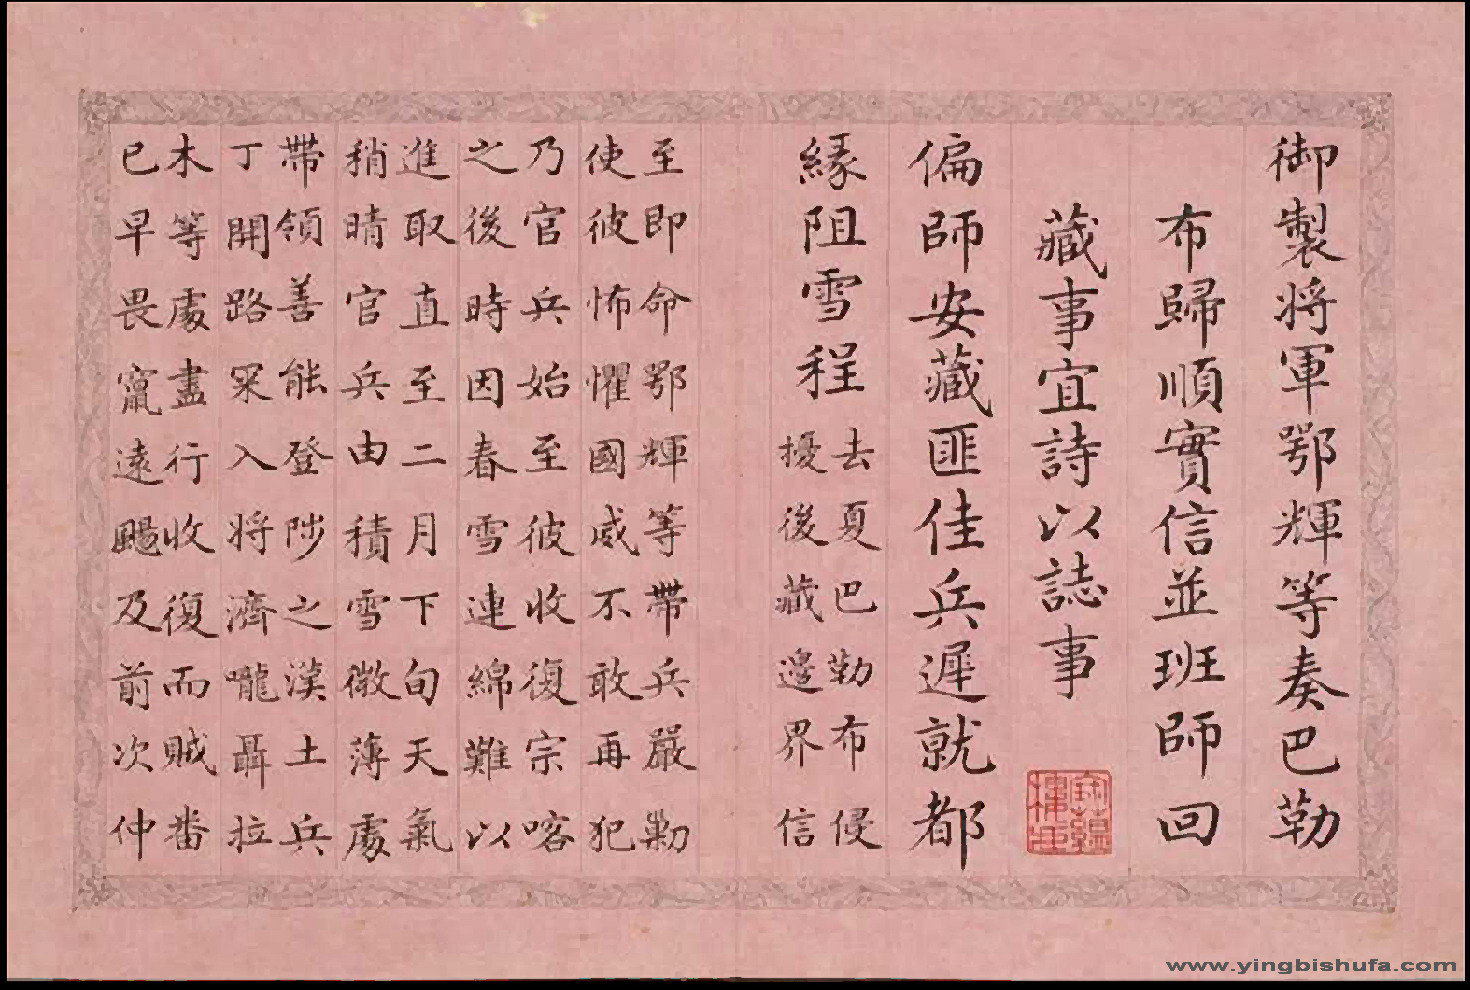 御製將軍鄂輝等奏巴勒
布歸順實信並班師回
藏事宜詩以誌事
偏師安藏匪佳兵遲就都
緣阻雪程
去夏巴勒布侵
擾後藏邊界信
至即命鄂輝等帶兵嚴勦
使彼怖懼國威不敢再犯
乃官兵始至彼收復宗喀
之後時因春雪連綿難以
進取直至二月下旬天氣
稍晴官兵由積雪微薄處
帶領善能登陟之漢土兵
丁開路眾入將濟嚨聶拉
木等處盡行收復而賊番
已早畏竄遠颺及前次仲
www.yingbishufa.com